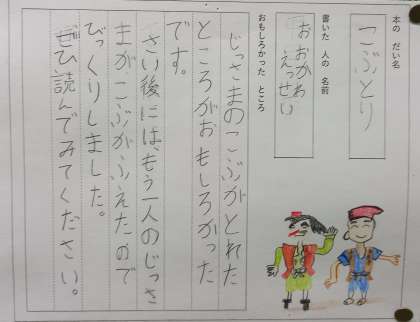 本の だい名
こぶとり
書いた 人の 名前
おおかわ
えっせい
おもしろかった ところ
じっさまのこぶがとれた
ところがおもしろかった
です。
さい後には、もう一人のじっさ
まがこぶがふえたので
びっくりしました。
ぜひ読んでみてください。